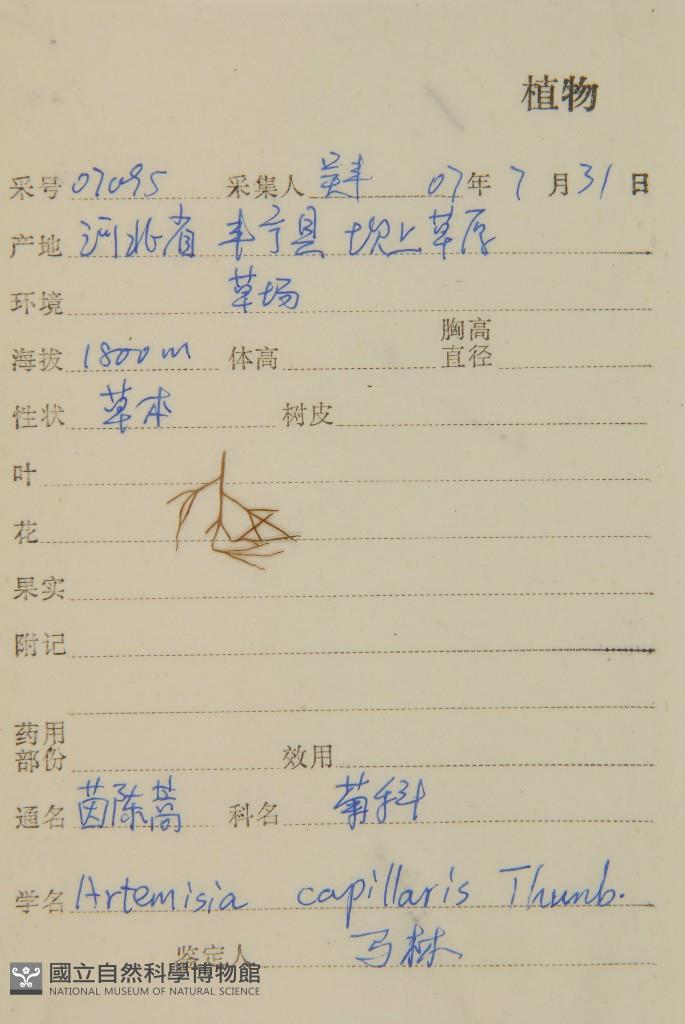 植物
采号 07095 采集人 吴丰 07年 7月31日
产地 河北省 丰宁县 坝上草原
环境 草场
海拔 1800m 体高 胸高直径
性状 草本 树皮
叶
花
果实
附记
药用部份 效用
通名 茵陈蒿 科名 菊科
学名 Artemisia capillaris Thunb.
鉴定人 马林
國立自然科學博物館
NATIONAL MUSEUM OF NATURAL SCIENCE